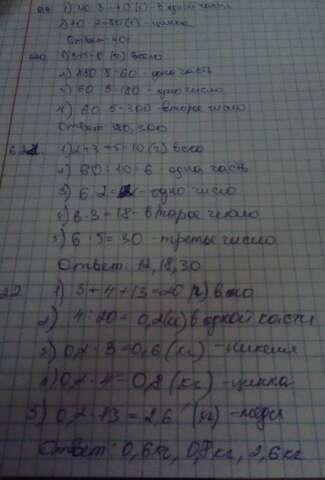 1) 120:3=40(г)-в одной части
2) 40·2=80(г)-цинка
Ответ:
1) 3+5=8(ч) всего
2) 480:8=60-одна часть
3) 60·3=180-одно число
4) 60·5=300-второе число
Ответ: 180,300
621 1) 2+3+5=10(ч) всего
2) 60:10=6-одна часть
3) 6·2=12-одно число
4) 6·3=18-второе число
5) 6·5=30-третье число
Ответ: 12,18,30
22 1) 3+4+13=20(ч) всего
2) 4:20=0,2(кг) в одной части
3) 0,2·3=0,6(кг)-никеля
4) 0,2·4=0,8(кг)-цинка
5) 0,2·13=2,6(кг)-меди
Ответ: 0,6кг, 0,8кг, 2,6кг